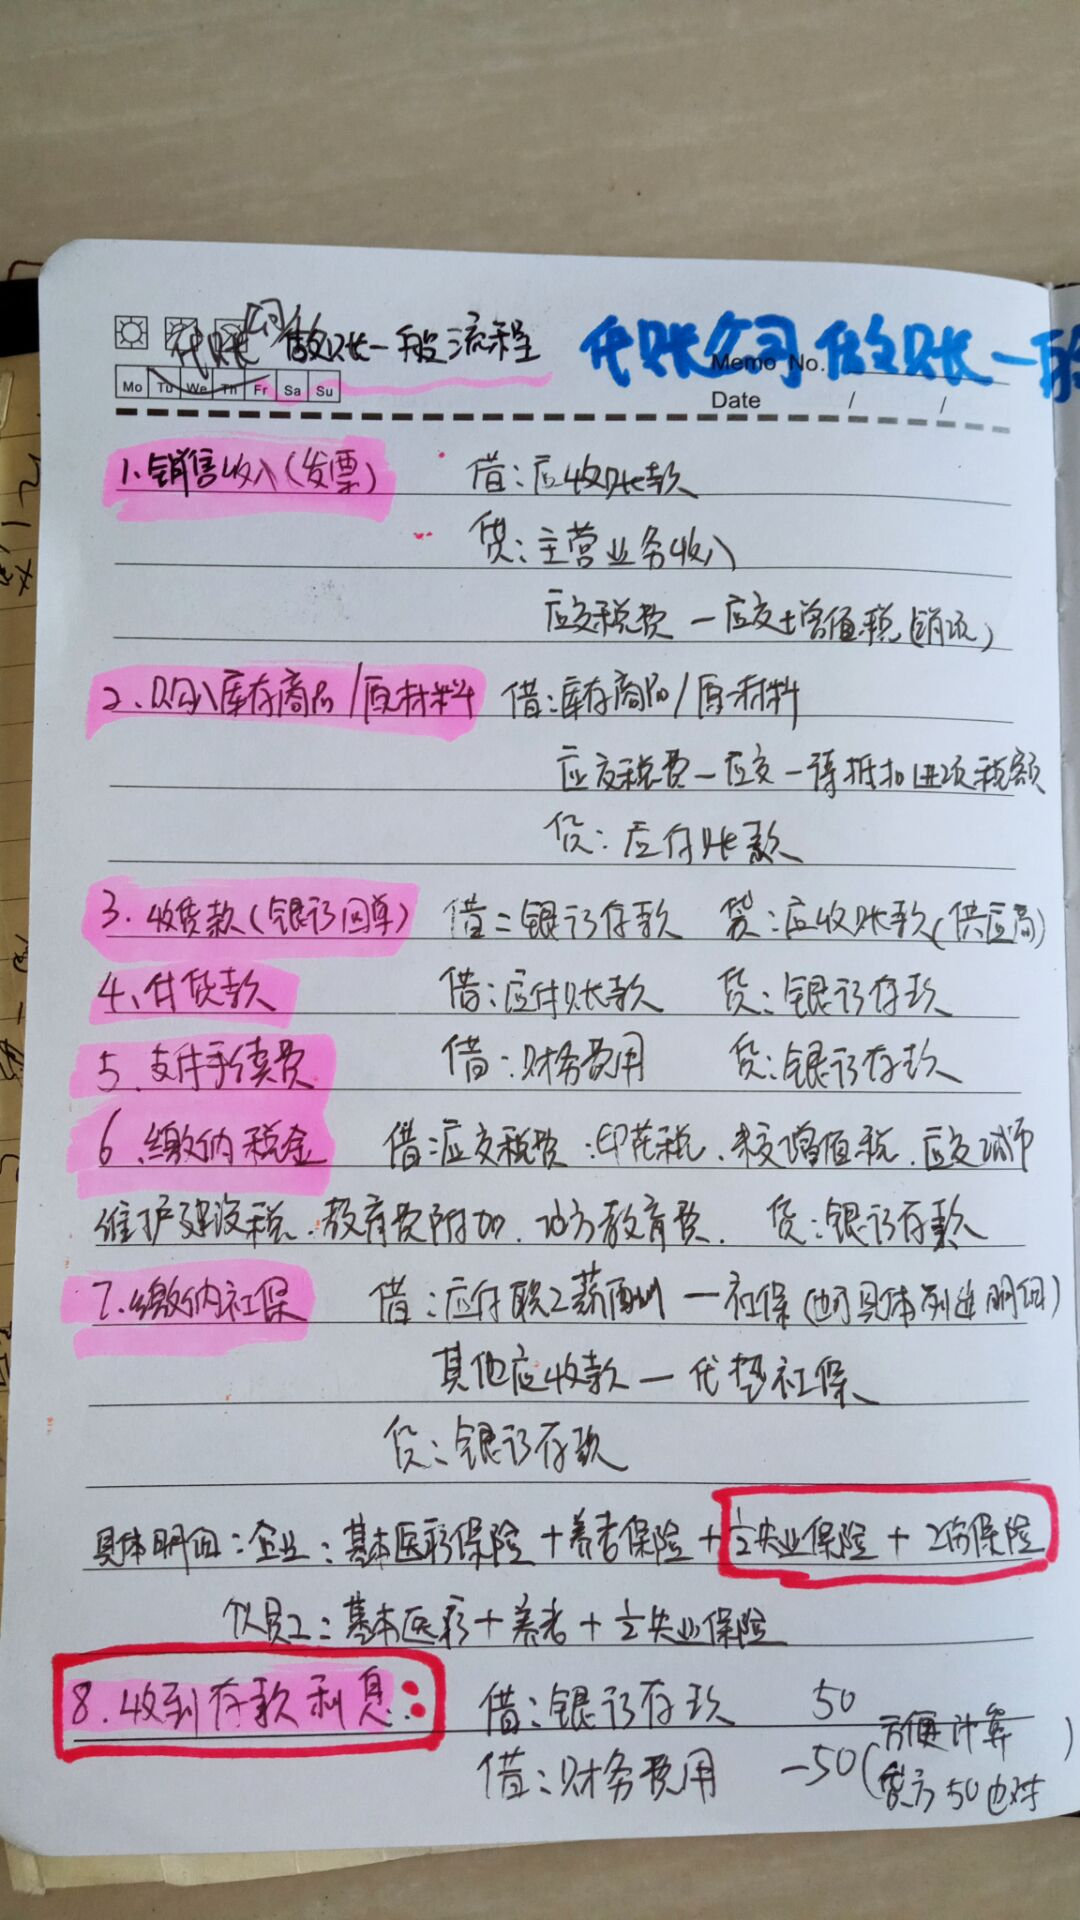 代账公司做账一般流程
代账公司做账一般
Memo No.
Mo Tu We Th Fr Sa Su
Date / /
1、销售收入(发票) 借:应收账款
贷:主营业务收入
应交税费—应交增值税(销项)
2、购入库存商品/原材料 借:库存商品/原材料
应交税费—应交—待抵扣进项税额
贷:应付账款
3.收货款(银行回单) 借:银行存款 贷:应收账款(供应商)
4、付货款 借:应付账款 贷:银行存款
5.支付手续费 借:财务费用 贷:银行存款
6.缴纳税金 借:应交税费:印花税、未交增值税、应交城市
维护建设税、教育费附加、地方教育费、 贷:银行存款
7.缴纳社保 借:应付职工薪酬—社保(也可具体列进明细)
其他应收款—代垫社保
贷:银行存款
具体明细:企业:基本医疗保险+养老保险+½失业保险+工伤保险
员工:基本医疗+养老+½失业保险
8.收到存款利息: 借:银行存款 50
借:财务费用 -50(方便计算
贷方50也对)